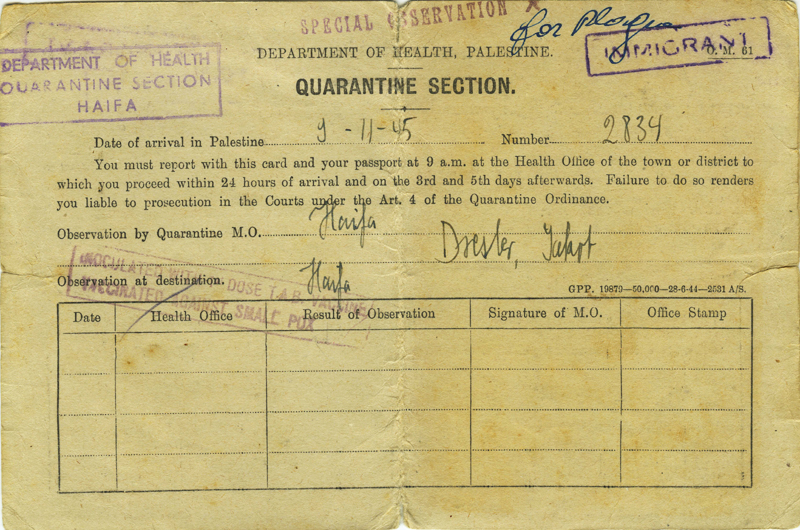 SPECIAL OBSERVATION X
for Plague
DEPARTMENT OF HEALTH, PALESTINE.
Q.M. 61
IMMIGRANT
DEPARTMENT OF HEALTH
QUARANTINE SECTION
HAIFA
QUARANTINE SECTION.
Date of arrival in Palestine 9-11-45 Number 2834
You must report with this card and your passport at 9 a.m. at the Health Office of the town or district to
which you proceed within 24 hours of arrival and on the 3rd and 5th days afterwards. Failure to do so renders
you liable to prosecution in the Courts under the Art. 4 of the Quarantine Ordinance.
Observation by Quarantine M.O. Haifa
Observation at destination. Haifa
INOCULATED WITH DOSE T.A.B. VACCINE
VACCINATED AGAINST SMALL POX
GPP. 19879—50,000—28-6-44—2531 A/S.
Date Health Office Result of Observation Signature of M.O. Office Stamp